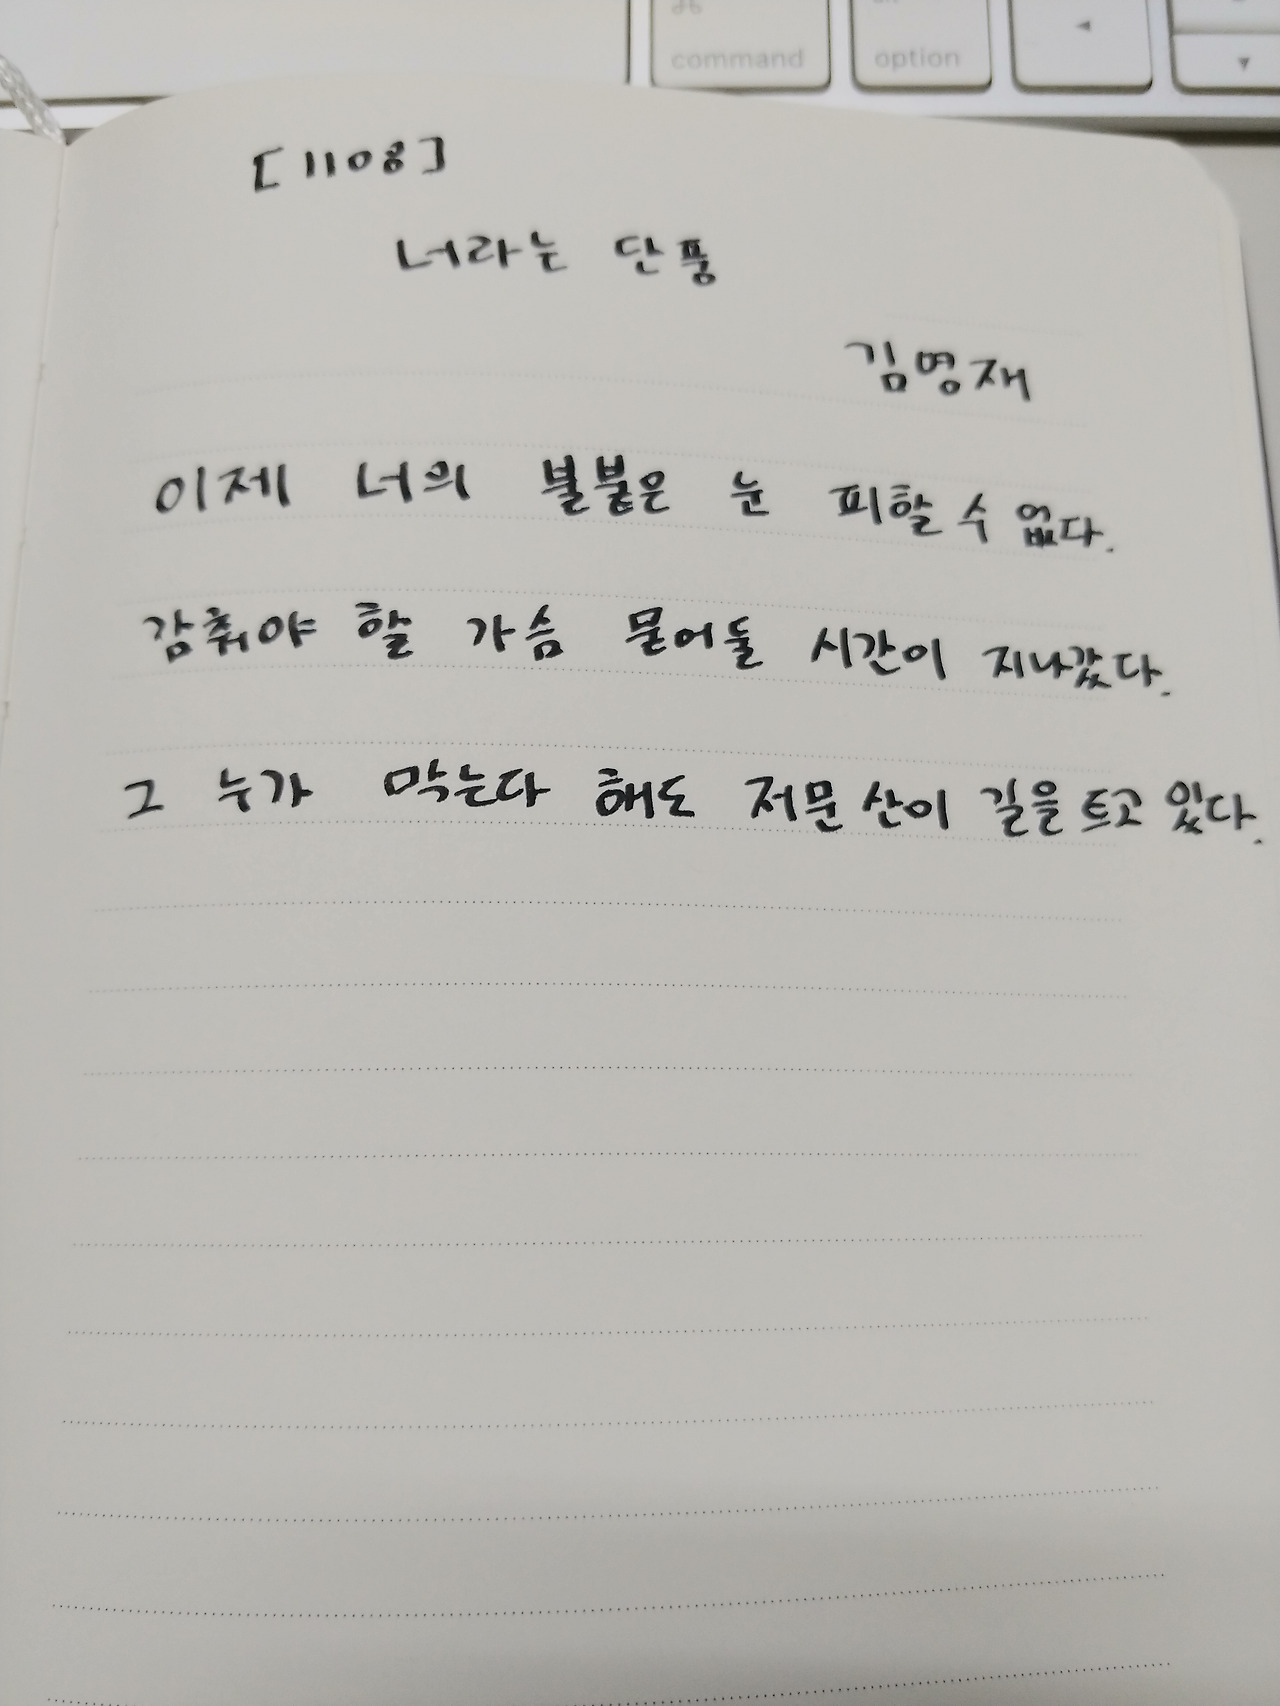 command option
[1108]
너라는 단풍
김영재
이제 너의 불붙은 눈 피할 수 없다.
감춰야 할 가슴 묻어둘 시간이 지나갔다.
그 누가 막는다 해도 저문 산이 길을 트고 있다.